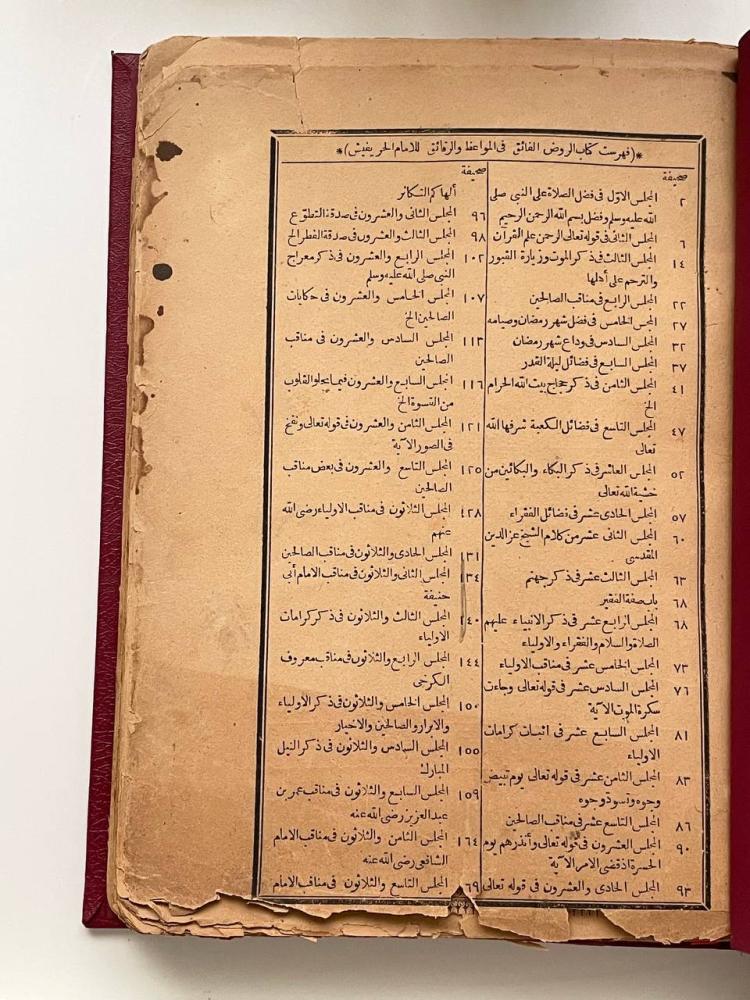 *(فهرست كتاب الروض الفائق فى المواعظ والرقائق للامام الحريفيش)*
صحيفة
٢ المجلس الاول فى فضل الصلاة على النبى صلى
الله عليه وسلم وفضل بسم الله الرحمن الرحيم
٦ المجلس الثانى فى قوله تعالى الرحمن علم القرآن
١٤ المجلس الثالث فى ذكر الموت وزيارة القبور
والترحم على أهلها
٢٢ المجلس الرابع فى مناقب الصالحين
٢٧ المجلس الخامس فى فضل شهر رمضان وصيامه
٣٢ المجلس السادس فى وداع شهر رمضان
٣٧ المجلس السابع فى فضائل ليلة القدر
٤١ المجلس الثامن فى ذكر حجاج بيت الله الحرام
الخ
٤٧ المجلس التاسع فى فضائل الكعبة شرفها الله
تعالى
٥٢ المجلس العاشر فى ذكر البكاء والبكائين من
خشية الله تعالى
٥٧ المجلس الحادى عشر فى فضائل الفقراء
٦٠ المجلس الثانى عشر من كلام الشيخ عز الدين
المقدسى
٦٣ المجلس الثالث عشر فى ذكر جهنم
٦٨ باب صفة الفقير
٦٨ المجلس الرابع عشر فى ذكر الانبياء عليهم
الصلاة والسلام والفقراء والاولياء
٧٣ المجلس الخامس عشر فى مناقب الاولياء
٧٦ المجلس السادس عشر فى قوله تعالى وجاءت
سكرة الموت الآية
٨١ المجلس السابع عشر فى اثبات كرامات
الاولياء
٨٣ المجلس الثامن عشر فى قوله تعالى يوم تبيض
وجوه وتسود وجوه
٨٦ المجلس التاسع عشر فى مناقب الصالحين
٩٠ المجلس العشرون فى قوله تعالى وأنذرهم يوم
الحسرة اذ قضى الامر الآية
٩٣ المجلس الحادى والعشرون فى قوله تعالى
صحيفة
ألهاكم التكاثر
٩٦ المجلس الثانى والعشرون فى صدقة التطوع
٩٨ المجلس الثالث والعشرون فى صدقة الفطر الخ
١٠٢ المجلس الرابع والعشرون فى ذكر معراج
النبى صلى الله عليه وسلم
١٠٧ المجلس الخامس والعشرون فى حكايات
الصالحين الخ
١١٣ المجلس السادس والعشرون فى مناقب
الصالحين
١١٦ المجلس السابع والعشرون فيما يجلو القلوب
من القسوة الخ
١٢١ المجلس الثامن والعشرون فى قوله تعالى ونفخ
فى الصور الآية
١٢٥ المجلس التاسع والعشرون فى بعض مناقب
الصالحين
٤٢٨ المجلس الثلاثون فى مناقب الاولياء رضى الله
عنهم
١٣١ المجلس الحادى والثلاثون فى مناقب الصالحين
١٣٤ المجلس الثانى والثلاثون فى مناقب الامام أبى
حنيفة
١٤٠ المجلس الثالث والثلاثون فى ذكر كرامات
الاولياء
١٤٤ المجلس الرابع والثلاثون فى مناقب معروف
الكرخى
١٥٠ المجلس الخامس والثلاثون فى ذكر الاولياء
والابرار والصالحين والاخيار
١٥٥ المجلس السادس والثلاثون فى ذكر النيل
المبارك
١٥٩ المجلس السابع والثلاثون فى مناقب عمر بن
عبد العزيز رضى الله عنه
١٦٤ المجلس الثامن والثلاثون فى مناقب الامام
الشافعى رضى الله عنه
١٦٩ المجلس التاسع والثلاثون فى مناقب الامام